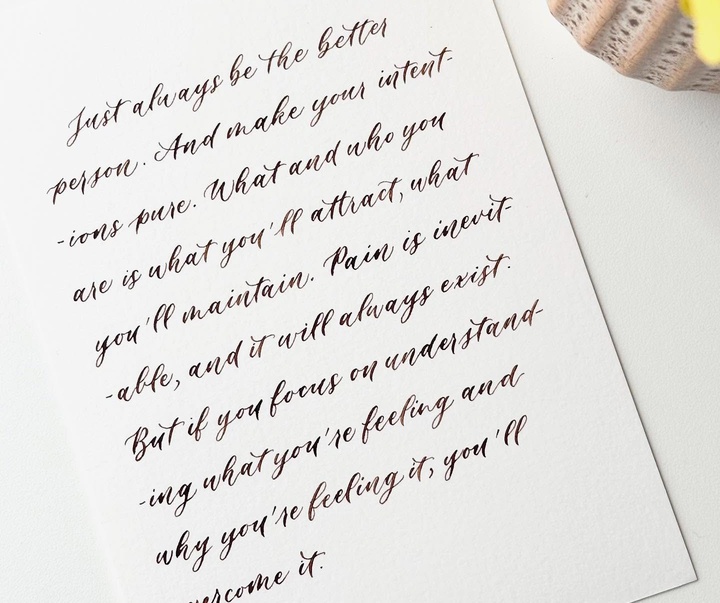 Just always be the better
person. And make your intent-
-ions pure. What and who you
are is what you'll attract, what
you'll maintain. Pain is inevit-
-able, and it will always exist.
But if you focus on understand-
-ing what you're feeling and
why you're feeling it, you'll
overcome it.